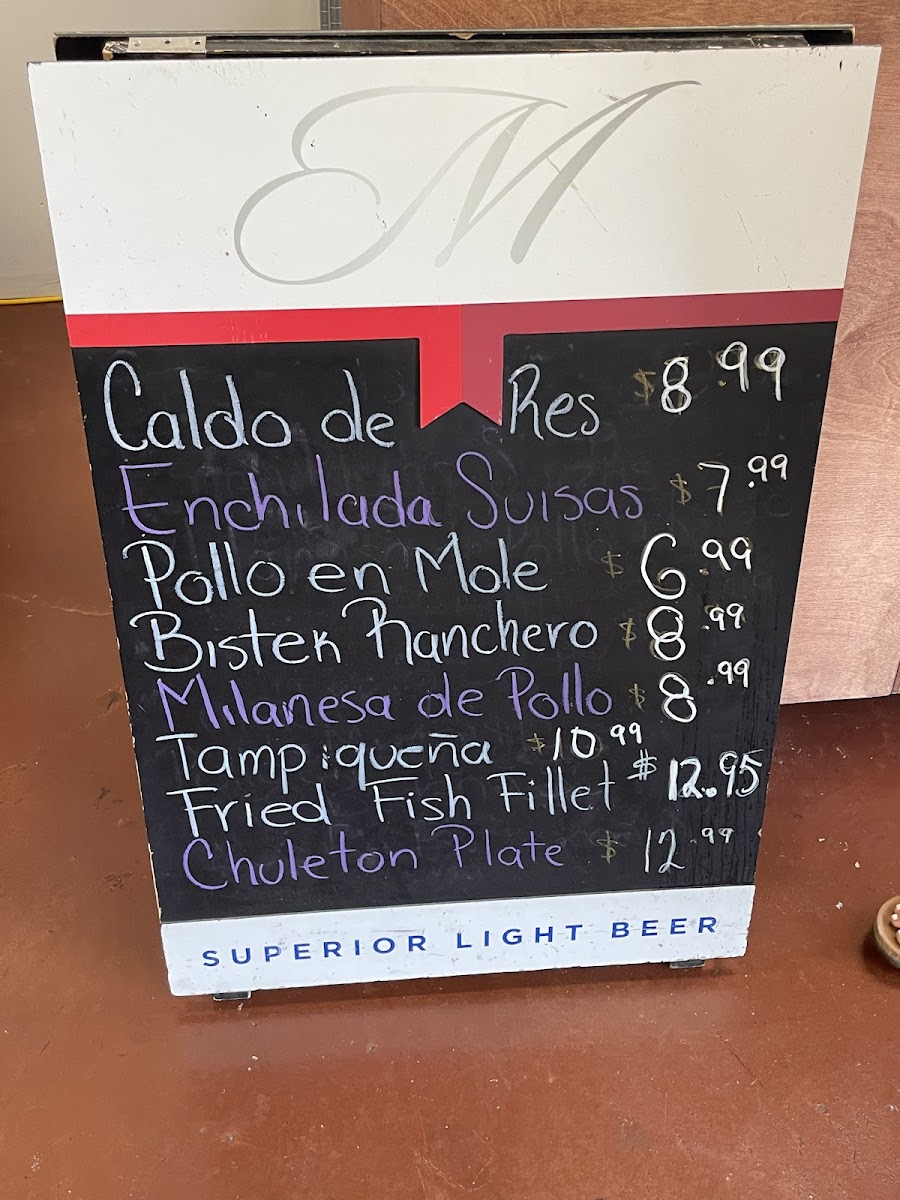 M
Caldo de Res $8.99
Enchilada Suisas $7.99
Pollo en Mole $6.99
Bistek Ranchero $8.99
Milanesa de Pollo $8.99
Tampiqueña $10.99
Fried Fish Fillet $12.95
Chuleton Plate $12.99
SUPERIOR LIGHT BEER